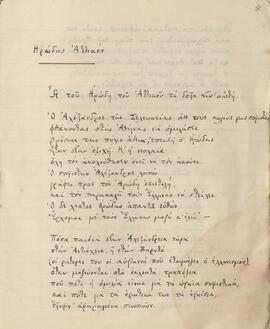 Ηρώδης Αττικός
Ά του Ηρώδη του Αττικού τι δόξα είν' αυτή.
Ο Αλέξανδρος της Σελευκείας απ' τους καλούς μας σοφιστάς
φθάνοντας στας Αθήνας να ομιλήση
βρίσκει την πόλιν άδεια, επειδή ο Ηρώδης
ήταν στην εξοχή. Κ' η νεολαία
όλη τον ακολούθησεν εκεί να τον ακούει.
Ο σοφιστής Αλέξανδρος λοιπόν
γράφει προς τον Ηρώδη επιστολή
και τον παρακαλεί τους Έλληνας να στείλει.
Ο δε λεπτός Ηρώδης απαντά ευθύς·
«Έρχομαι με τους Έλληνας μαζύ κ' εγώ.»
Πόσα παιδιά στην Αλεξάνδρεια τώρα
στην Αντιόχεια, ή στην Βηρυτό
(οι ρήτορές του οι αυριανοί που ετοιμάζει ο ελληνισμός)
όταν μαζεύονται στα εκλεκτά τραπέζια
που πότε η ομιλία είναι για τα ωραία σοφιστικά,
και πότε για τα ερωτικά των τα εξαίσια,
έξαφν' αφηρημένα σιωπούν.